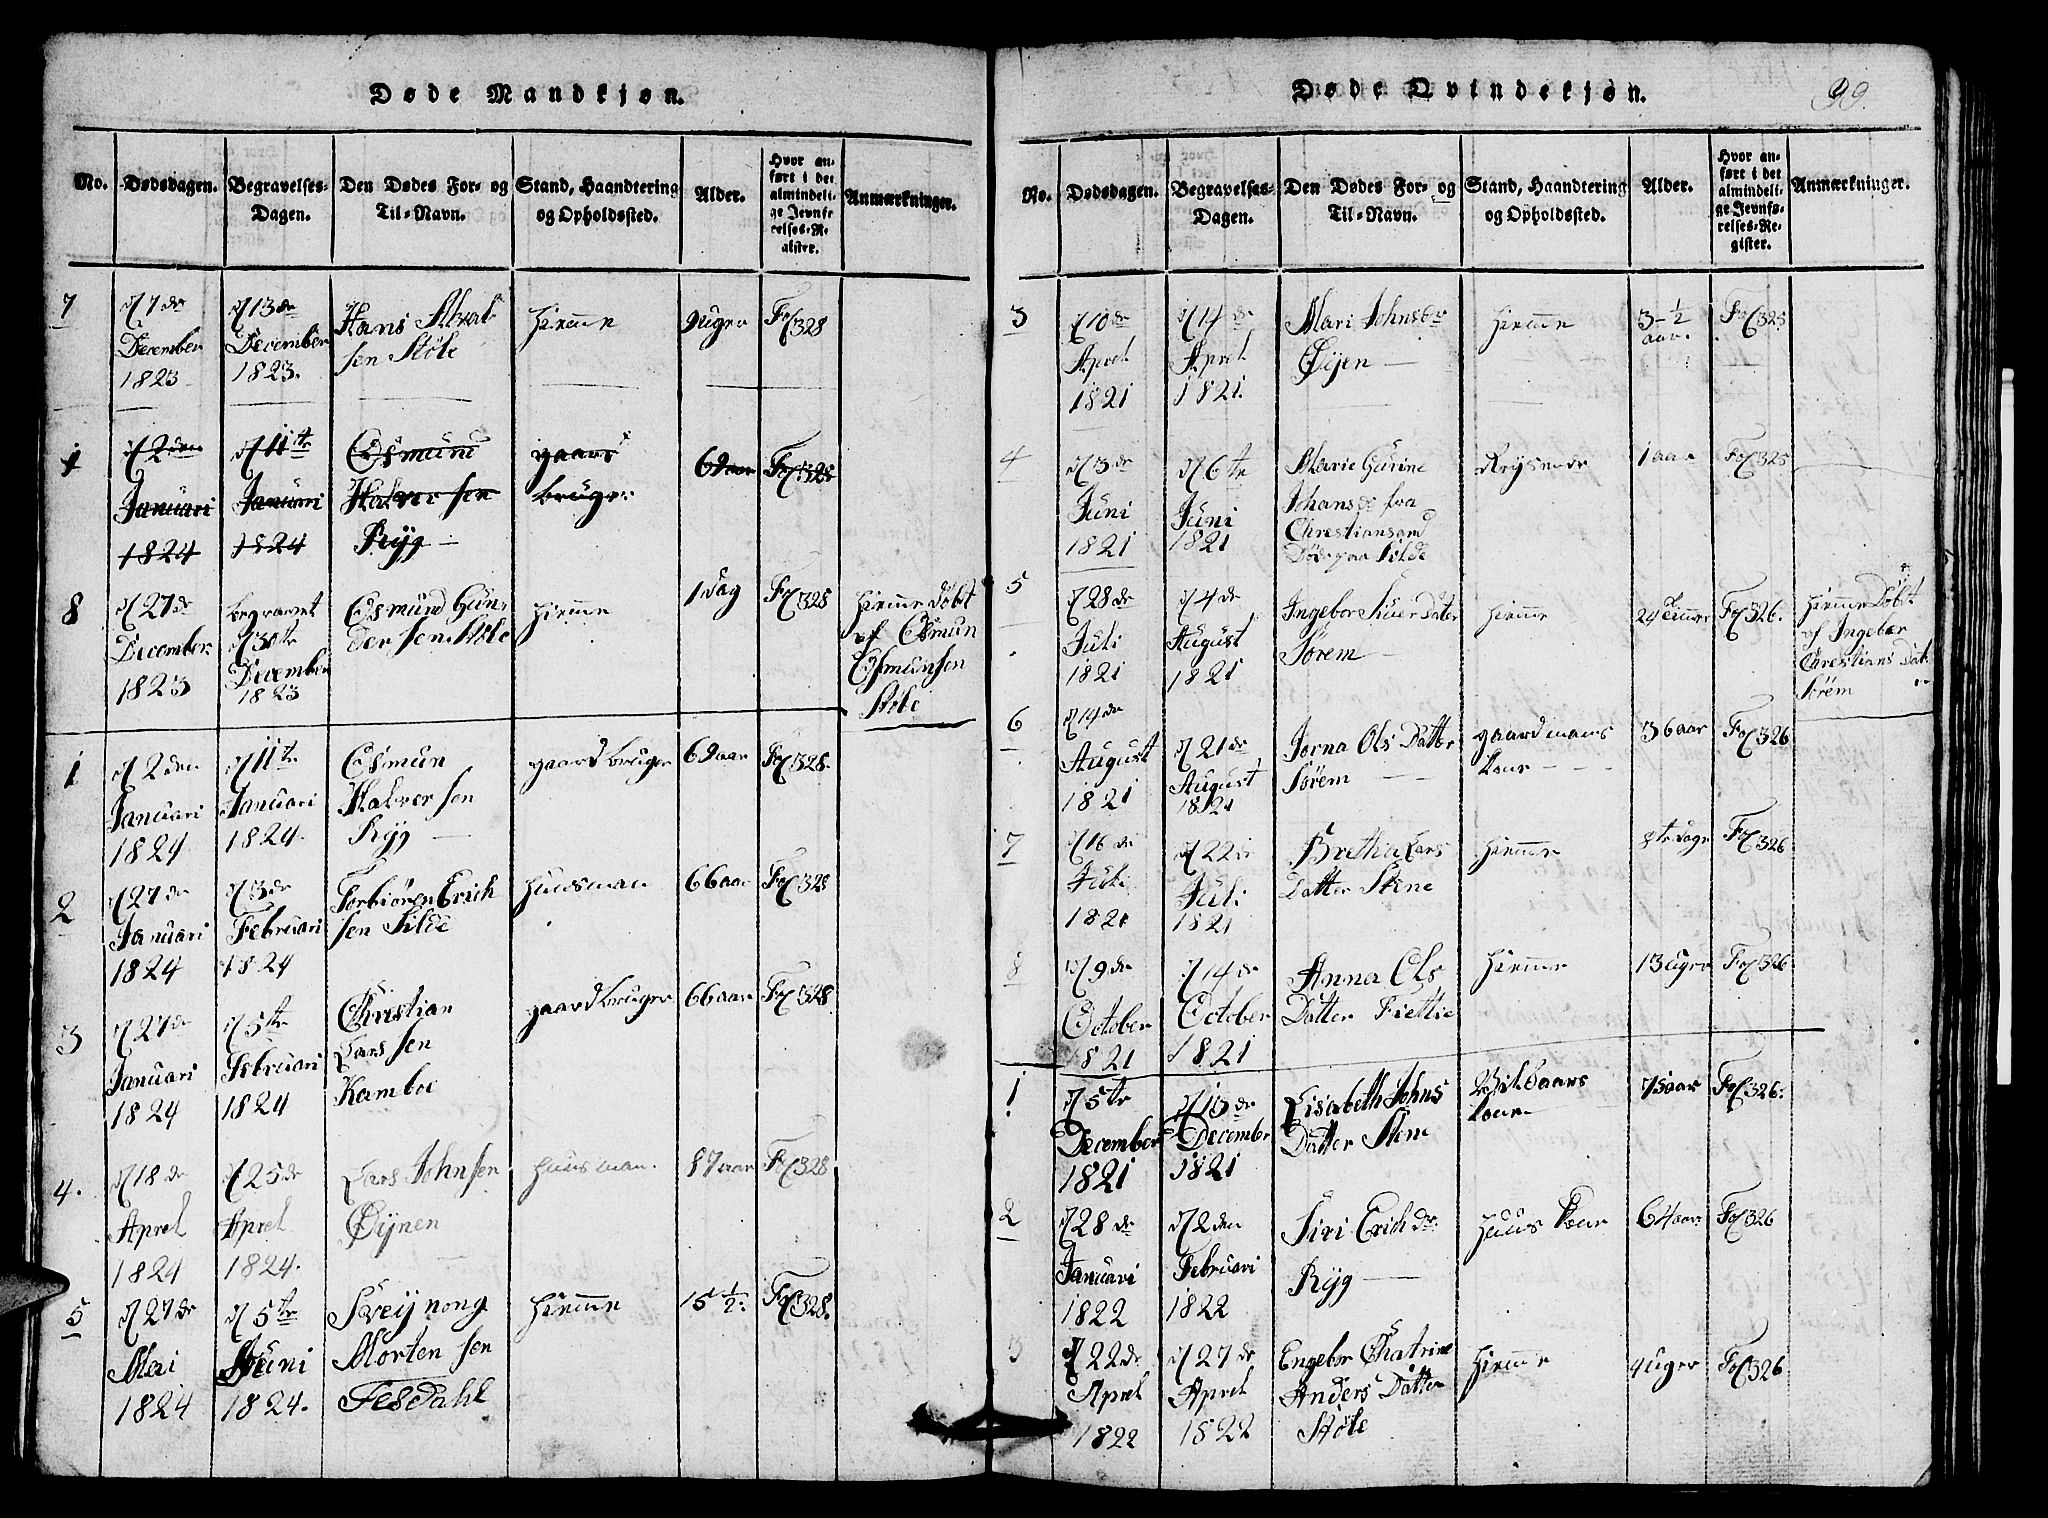 Døde Mandkjøn.
No. Dødsdagen. Begravelses-Dagen. Den Dødes For- og Til-Navn. Stand, Haandtering og Opholdssted. Alder. Hvor anført i det almindelige Jevnførelses-Register. Anmærkninger.
7 d 7de December 1823 d 13de December 1823. Hans Akral sen Støle Hiemme 9 uger Fol 328
1 d 2den Januari 1824 d 11te Januari 1824 Osmund Halversen Ryg gaard bruger 69 aar Fol 328
8 d 27de December 1823 begravet d 30te December 1823 Osmund Gunder sen Støle Hiemme 1 Dag Fol 328 Hiemme Døbt af Osmun Osmunsen Støle
1 d 2den Januari 1824 d 11te Januari 1824. Osmun Halversen Ryg gaardbruger 69 aar Fol 328.
2 d 27de Januari 1824 d 3de Februari 1824 Torbiøren Erich sen Silde Huusman 66 aar Fol 328
3 d 27de Januari 1824 d 5te Februari 1824 Christian Larssen Kamboe gaardbruger 66 aar Fol 328
4. d 18de Aprel 1824 d 25de Aprel 1824. Lars Johnsen Øynen Huusman. 87 aar Fol 328
5 d 27de Mai 1824 d 5te Juni 1824. Sveynong Mortensen Fesdahl Hiemme 15 1/2: Fol 328.
Døde Qvindekjøn. 99.
No. Dødsdagen. Begravelses-Dagen. Den Dødes For- og Til-Navn. Stand, Haandtering og Opholdssted. Alder. Hvor anført i det almindelige Jevnførelses-Register. Anmærkninger.
3 d 10de Aprel 1821 d 14de Aprel 1821. Mari Johnsdr Øyen Hiemme 3-1/2 aar. Fol 325
4 d 3de Juni 1821 d 6te Juni 1821 Marie Gurine Johans dr fra Chrestiansand Døde paa Silde 1 aar Fol 325
5 d 28de Juli 1821 d 4de August 1821 Ingebor Siver Datter Sørem Hiemme 24 Timer Fol 326. Hiemme Døbt af Ingebor Chrestians Dat. Sørem
6 d 14de August 1821 d 21de August 1821 Jorna Ols Datter Sørem gaardmans Kone 36 aar Fol 326
7 d 16de Juli 1821 d 22de Juli 1821 Brethe Lars Datter Stene Hiemme 8te dage Fol 326
8 d 9de October 1821 d 14de October 1821 Anna Ols Datter Fiettie Hiemme 13 uger Fol 326
1 d 5te December 1821 d 13de December 1821 Lisabeth Johns Datter Stene Kone 75 aar Fol 326.
2 d 28de Januari 1822 d 2den Februari 1822 Siri Erichdr Ryg Huus Kone 64 aar Fol 326
3 d 22de Aprel 1822 d 27de Aprel 1822 Engebor Chatrine Anders Datter Støle Hiemme 4 uger Fol 326